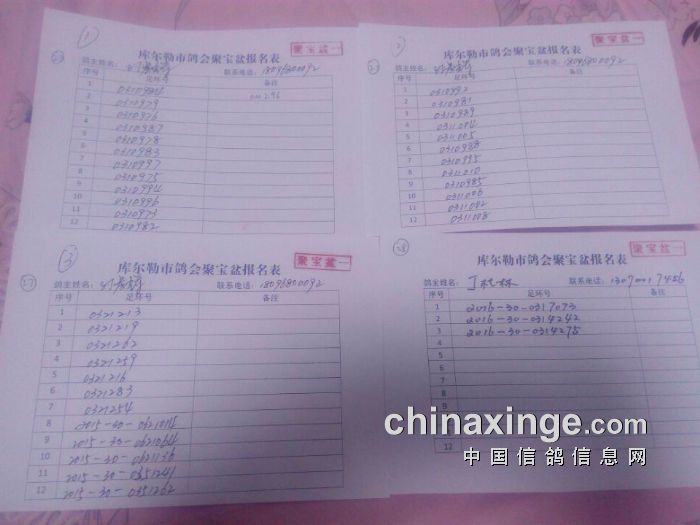 1
聚宝盆一
库尔勒市鸽会聚宝盆报名表
鸽主姓名: 联系电话: 18096800092
序号 足环号 备注
1 0310984 000296
2 0310979
3 0310976
4 0310987
5 0310978
6 0310983
7 0310997
8 0310975
9 0310994
10 0310996
11 0310973
12 0310982
2
聚宝盆一
库尔勒市鸽会聚宝盆报名表
鸽主姓名: 联系电话: 18096800092
序号 足环号 备注
1 0310992
2 0310981
3 0310989
4 0311004
5 0311005
6 0310988
7 0310995
8 0311010
9 0310985
10 0311006
11 0311002
12 0311008
3
27
聚宝盆一
库尔勒市鸽会聚宝盆报名表
鸽主姓名: 联系电话: 18096800092
序号 足环号 备注
1 0321213
2 0321219
3 0321262
4 0321259
5 0321216
6 0321283
7 0321254
8 2015-30-0621014
9 2015-30-0621064
10 2015-30-0621136
11 2015-30-0351241
12 2015-30-0351262
28
聚宝盆一
库尔勒市鸽会聚宝盆报名表
鸽主姓名: 联系电话: 13070017456
序号 足环号 备注
1 2016-30-0317073
2 2016-30-0314242
3 2016-30-0314275
4
5
6
7
8
12
chinaxinge.com
中国信鸽信息网